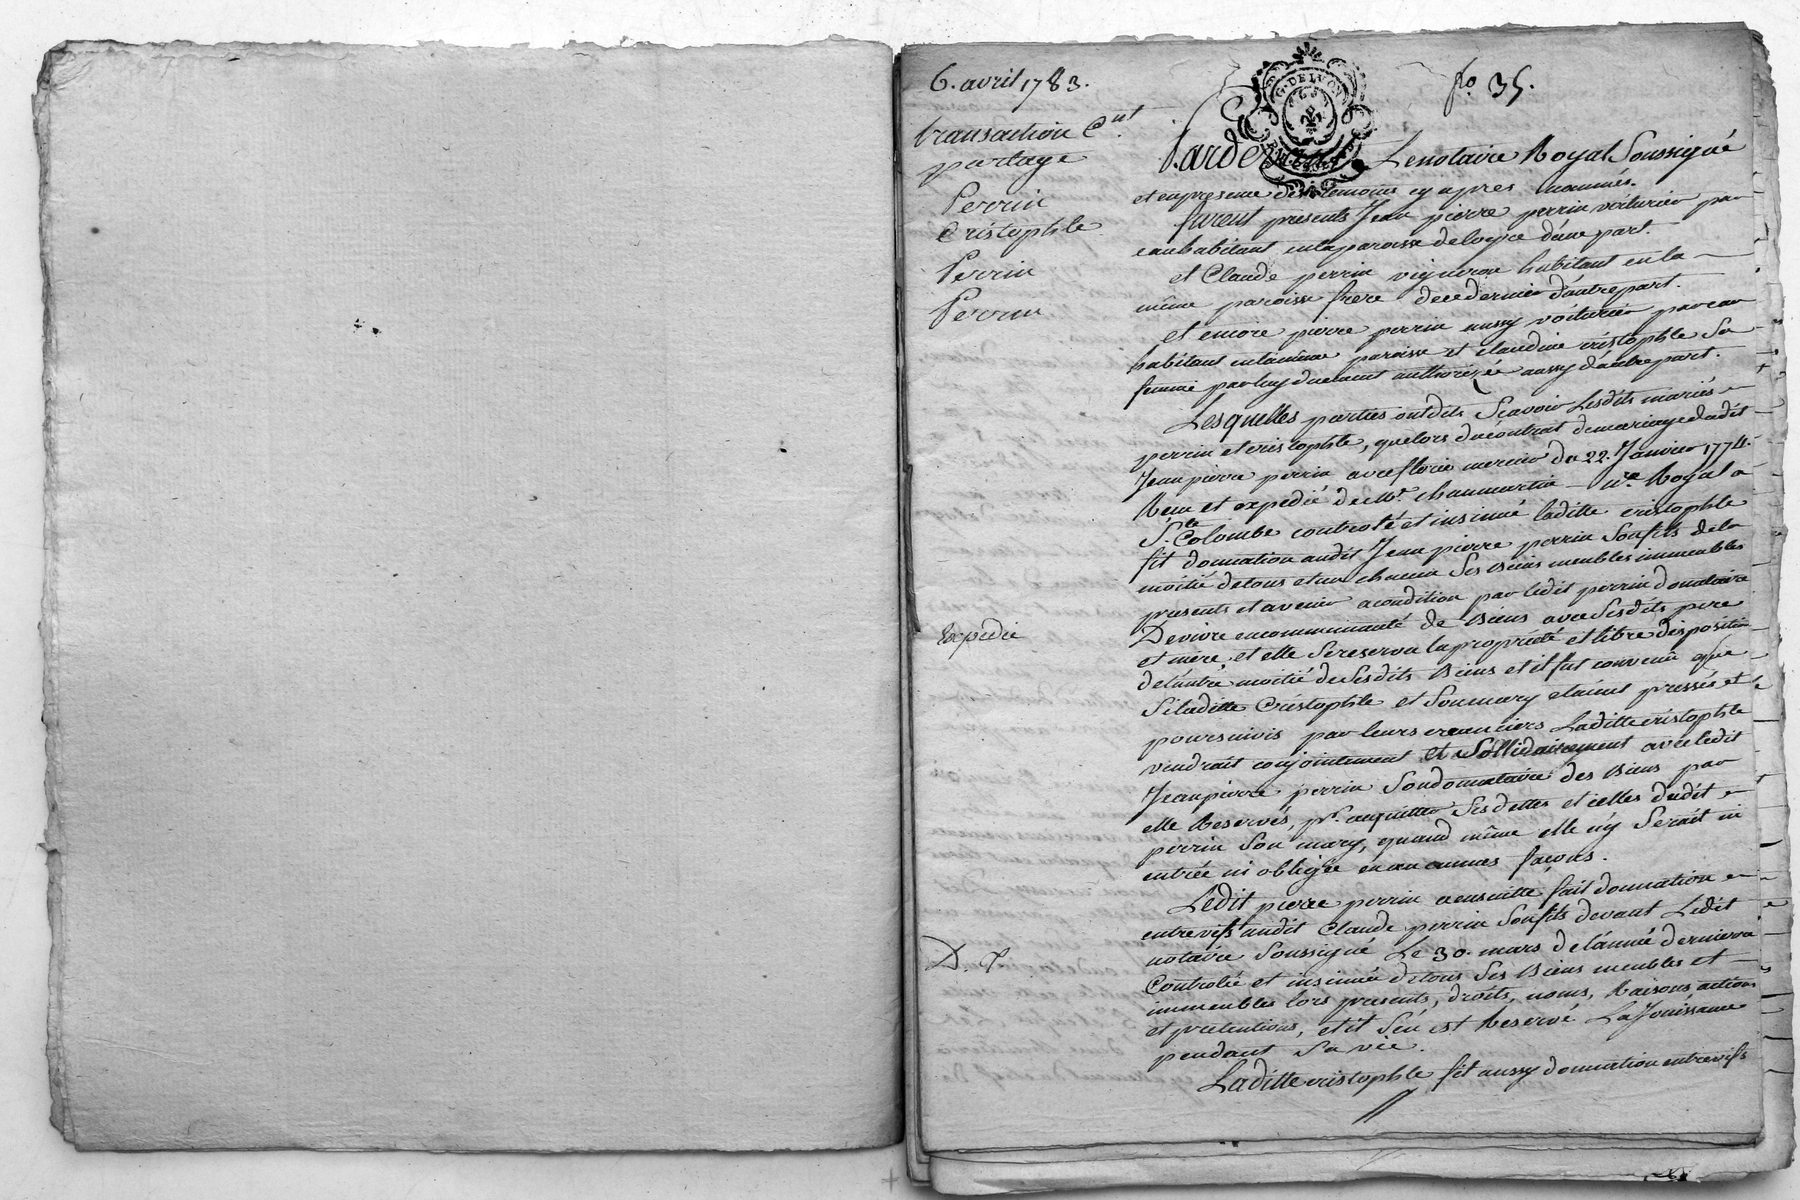 6. avril 1783.
fo. 35.
transaction Cnt.
partage
Perrin
Cristophle
Perrin
Perrin
Expedié
G. DE LYON
Pardevant Le notaire Royal Soussigné
et en presence des temoins cy apres nommés.
furent presents Jean pierre perrin voiturier par
eau habitant en la paroisse de loyre d'une part.
et Claude perrin vigneron habitant en la
même paroisse frere de ce dernier d'autre part.
et encore pierre perrin aussy voiturier par eau
habitant en la même paroisse et claudine cristophle Sa
femme par luy duement authorizée aussy d'autre part.
Lesquelles parties ont dit Scavoir Lesdits mariés
perrin et cristophle, que lors du contrat de mariage dudit
Jean pierre perrin avec florie mercier du 22. Janvier 1774.
Reçu et expedié de Me. chaumartin nre. Royal a
Ste. Colombe controlé et insinué laditte cristophle
fit donnation audit Jean pierre perrin Son fils de la
moitié de tous et un chacun Ses Biens meubles immeubles
presents et avenir a condition par ledit perrin donataire
De vivre en communauté de Biens avec Sesdits pere
et mère, et elle Se reserva la propriété et libre disposition
de l'autre moitié de Sesdits Biens et il fut convenu que
Si laditte Cristophle et Son mary etaient pressés et
poursuivis par leurs creanciers Laditte cristophle
vendrait conjointement et Sollidairement avec ledit
Jean pierre perrin Son donnataire des Biens par
elle Reservés, pr. acquitter Ses dettes et icelles dudit
perrin Son mary, quand même elle n'y Serait ni
entrée ni obligée en aucunnes façons.
Ledit pierre perrin a ensuitte fait donnation
entrevifs audit Claude perrin Son fils devant Ledit
notaire Soussigné Le 30. mars de l'année derniere
Controlée et insinuée de tous Ses Biens meubles et
immeubles lors presents, droits, noms, Raisons actions
et pretentions, et it S'en est Reservé La Jouissance
pendant Sa vie.
Laditte cristophle fit aussy donnation entrevifs